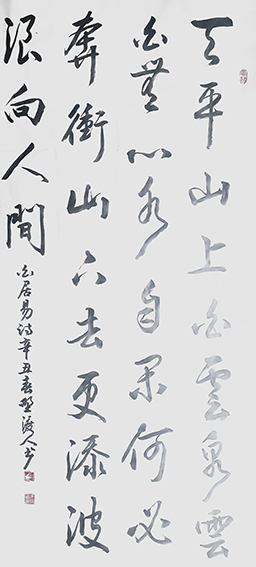 天平山上白雲泉雲
自無心水自閑何必
奔衝山下去更添波
浪向人間
白居易詩辛丑春野渡人书